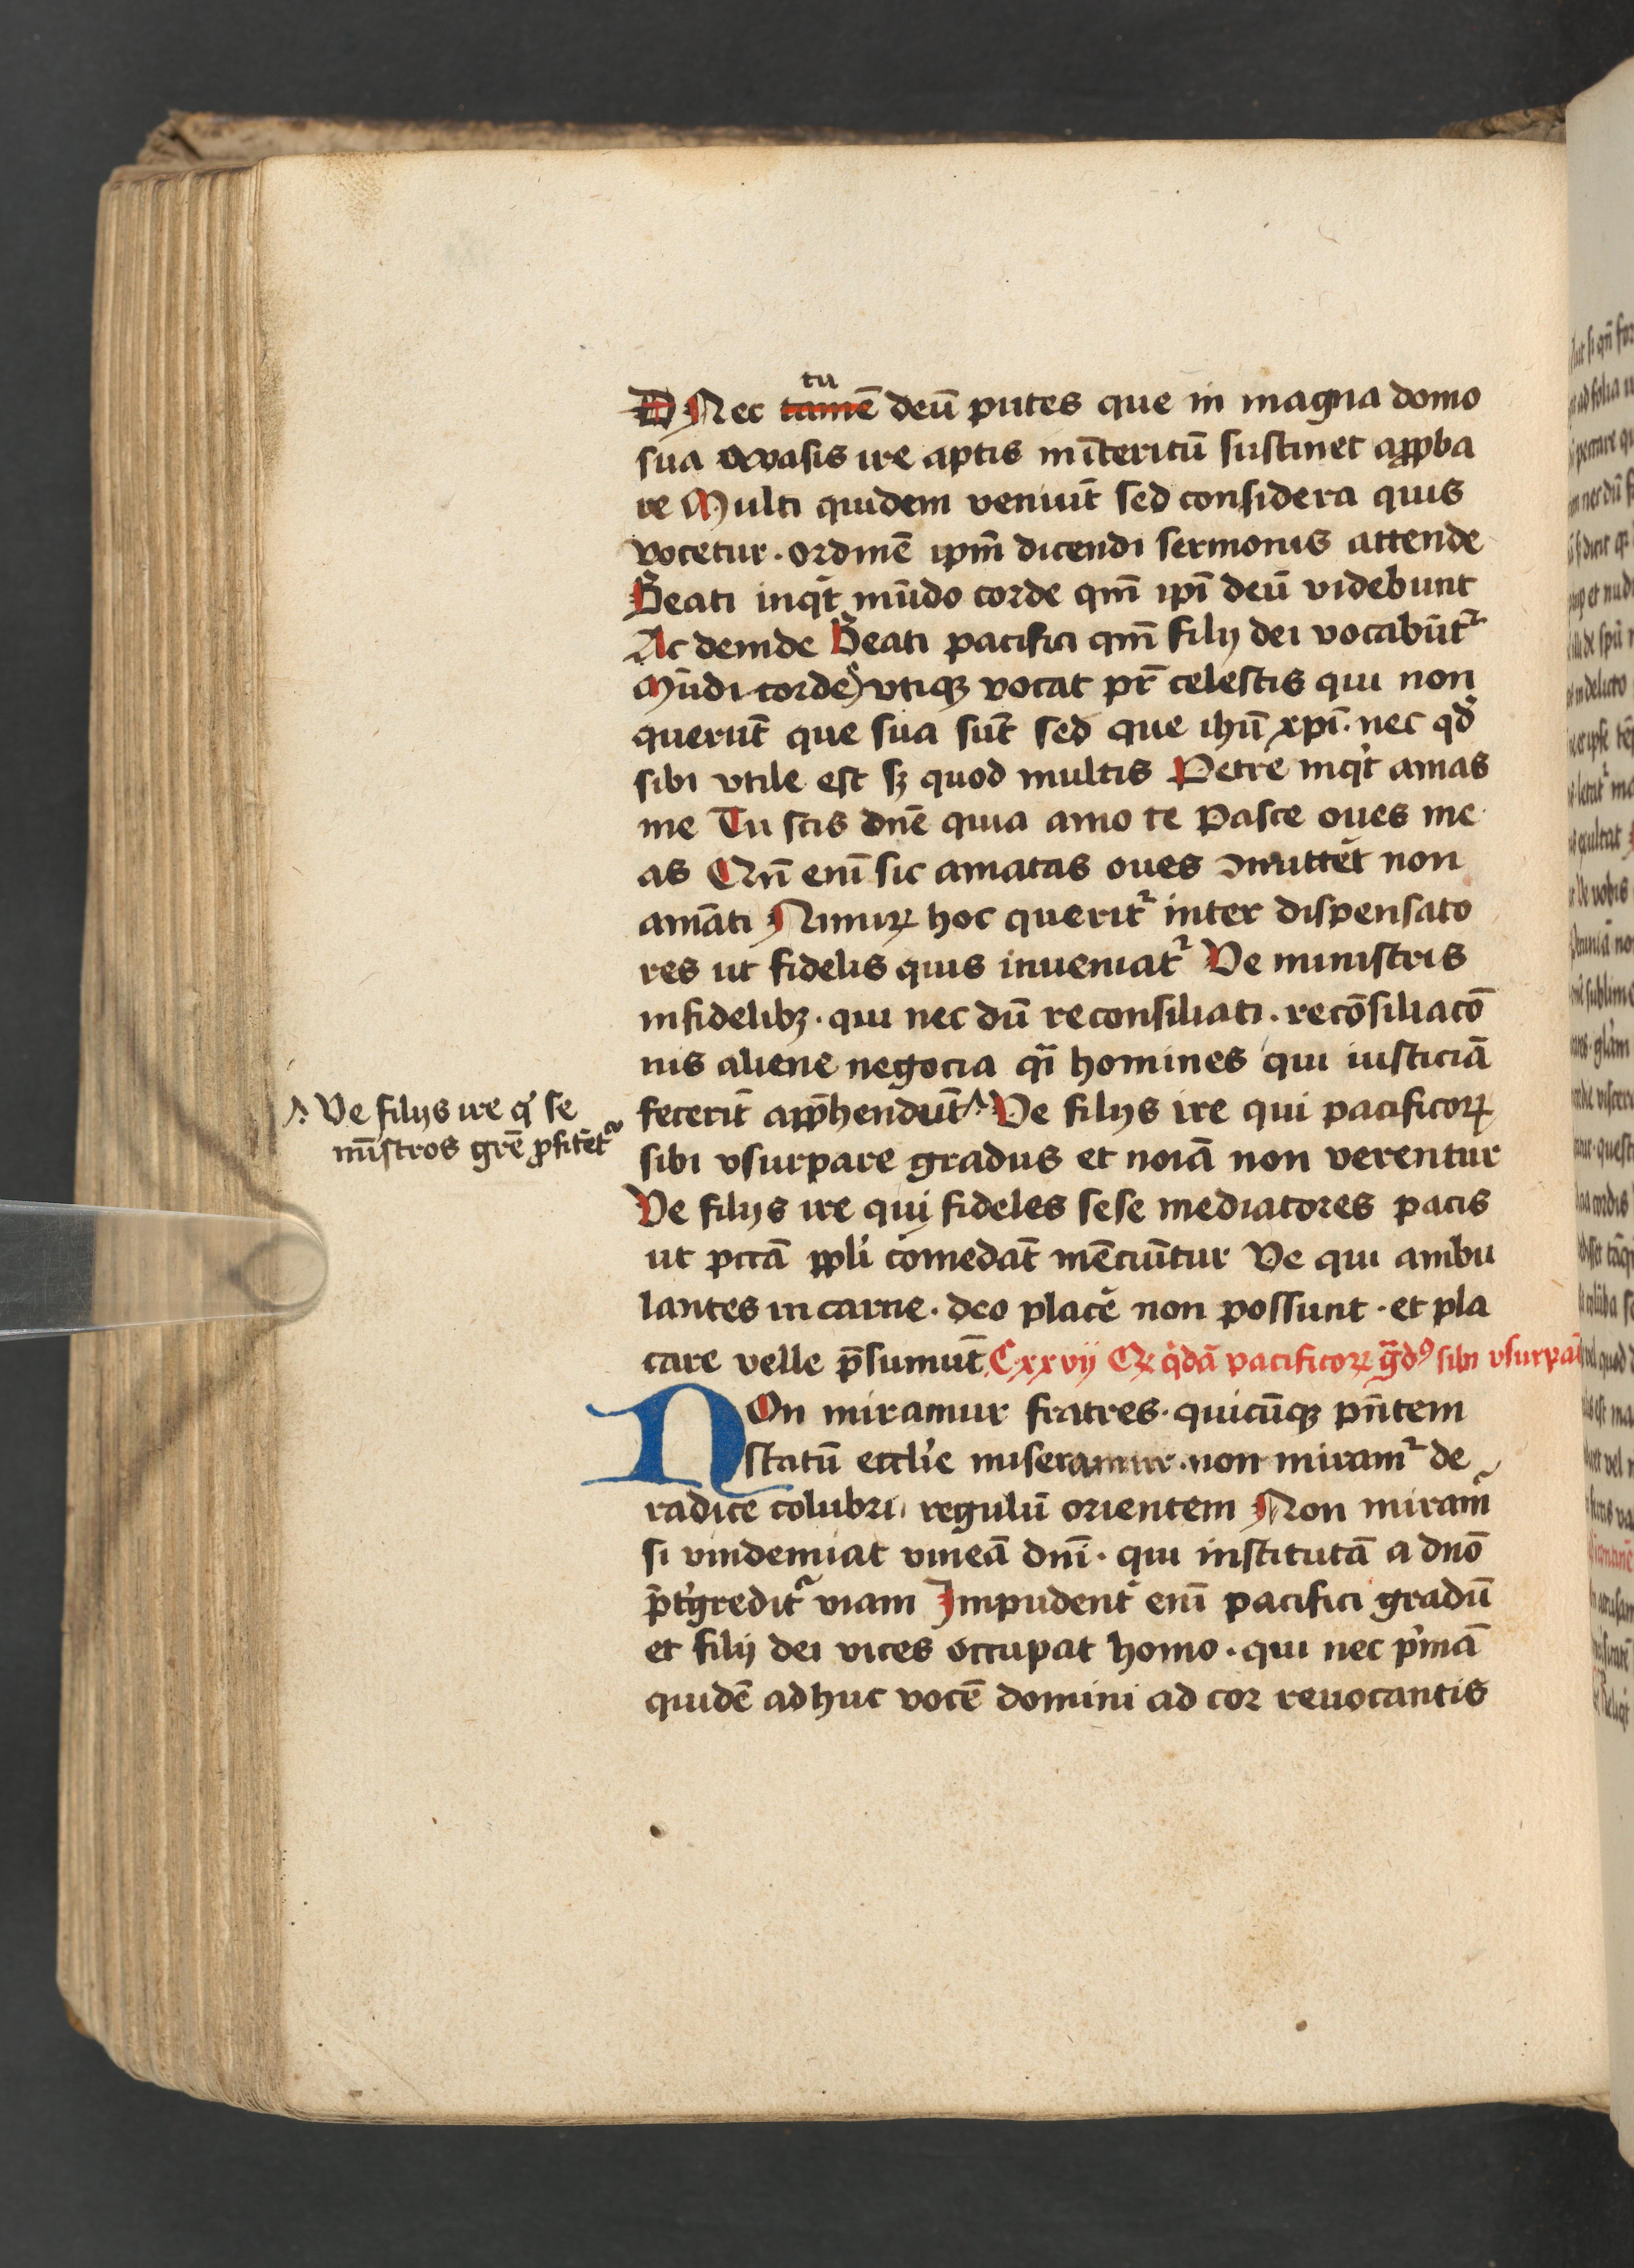 tu
Nec tamē deū putes que in magna domo
sua vasis ire aptis in īteritū sustinet apꝓba
re Multi quidem veniūt sed considera quis
vocetur · ordinē ip̄m dicendi sermonis attende
Beati inqͥt mūdo corde qm̄ ip̄i deū videbunt
Ac deinde Beati pacifici qm̄ filij dei vocabūtᷣ
Mūdi corde vtiqꝫ vocat pr̄ celestis qui non
querūt que sua sūt sed que ihū xp̄i · nec qd̓
sibi vtile est sꝫ quod multis Petre inqͥt amas
me Tu scis dn̄e quia amo te Pasce oues me
as Qn̄ eni̅ sic amatas oues cōmittet non
amāti Nimiꝝ hoc queritᷣ inter dispensato
res ut fidelis quis inueniatᷣ Ve ministris
infidelibꝫ · qui nec dū reconsiliati · recōsiliacō
nis aliene negocia qͣi homines qui iusticiā
fecerīt app̄hendūt Ve filijs ire qui pacificoꝝ
Ve filijs ire qͥ se
mīstros grē ꝓfitētᷣ
sibi vsurpare gradus et noiā non verentur
Ve filijs ire qui fideles sese mediatores pacis
ut pccā ppl̓i comedāt mēciūtur Ve qui ambu
lantes in carne · deo placē non possunt · et pla
care velle p̄sumūt Cxxvij Qꝫ qͥdā pacificoꝝ gͣdꝰ sibi vsurpāt
NOn miramur fratres · quicūqꝫ pn̄tem
statū eccl̓ie miseramur · non miramᷣ de
radice colubri regulū orientem Non miramᷣ
si vindemiat vineā dn̄i · qui institutā a dn̄o
p̄tͥgreditᷣ viam Impudent̓ eni̅ pacifici gradū
et filij dei vices occupat homo · qui nec pͥmā
quidē adhuc vocē domini ad cor reuocantis